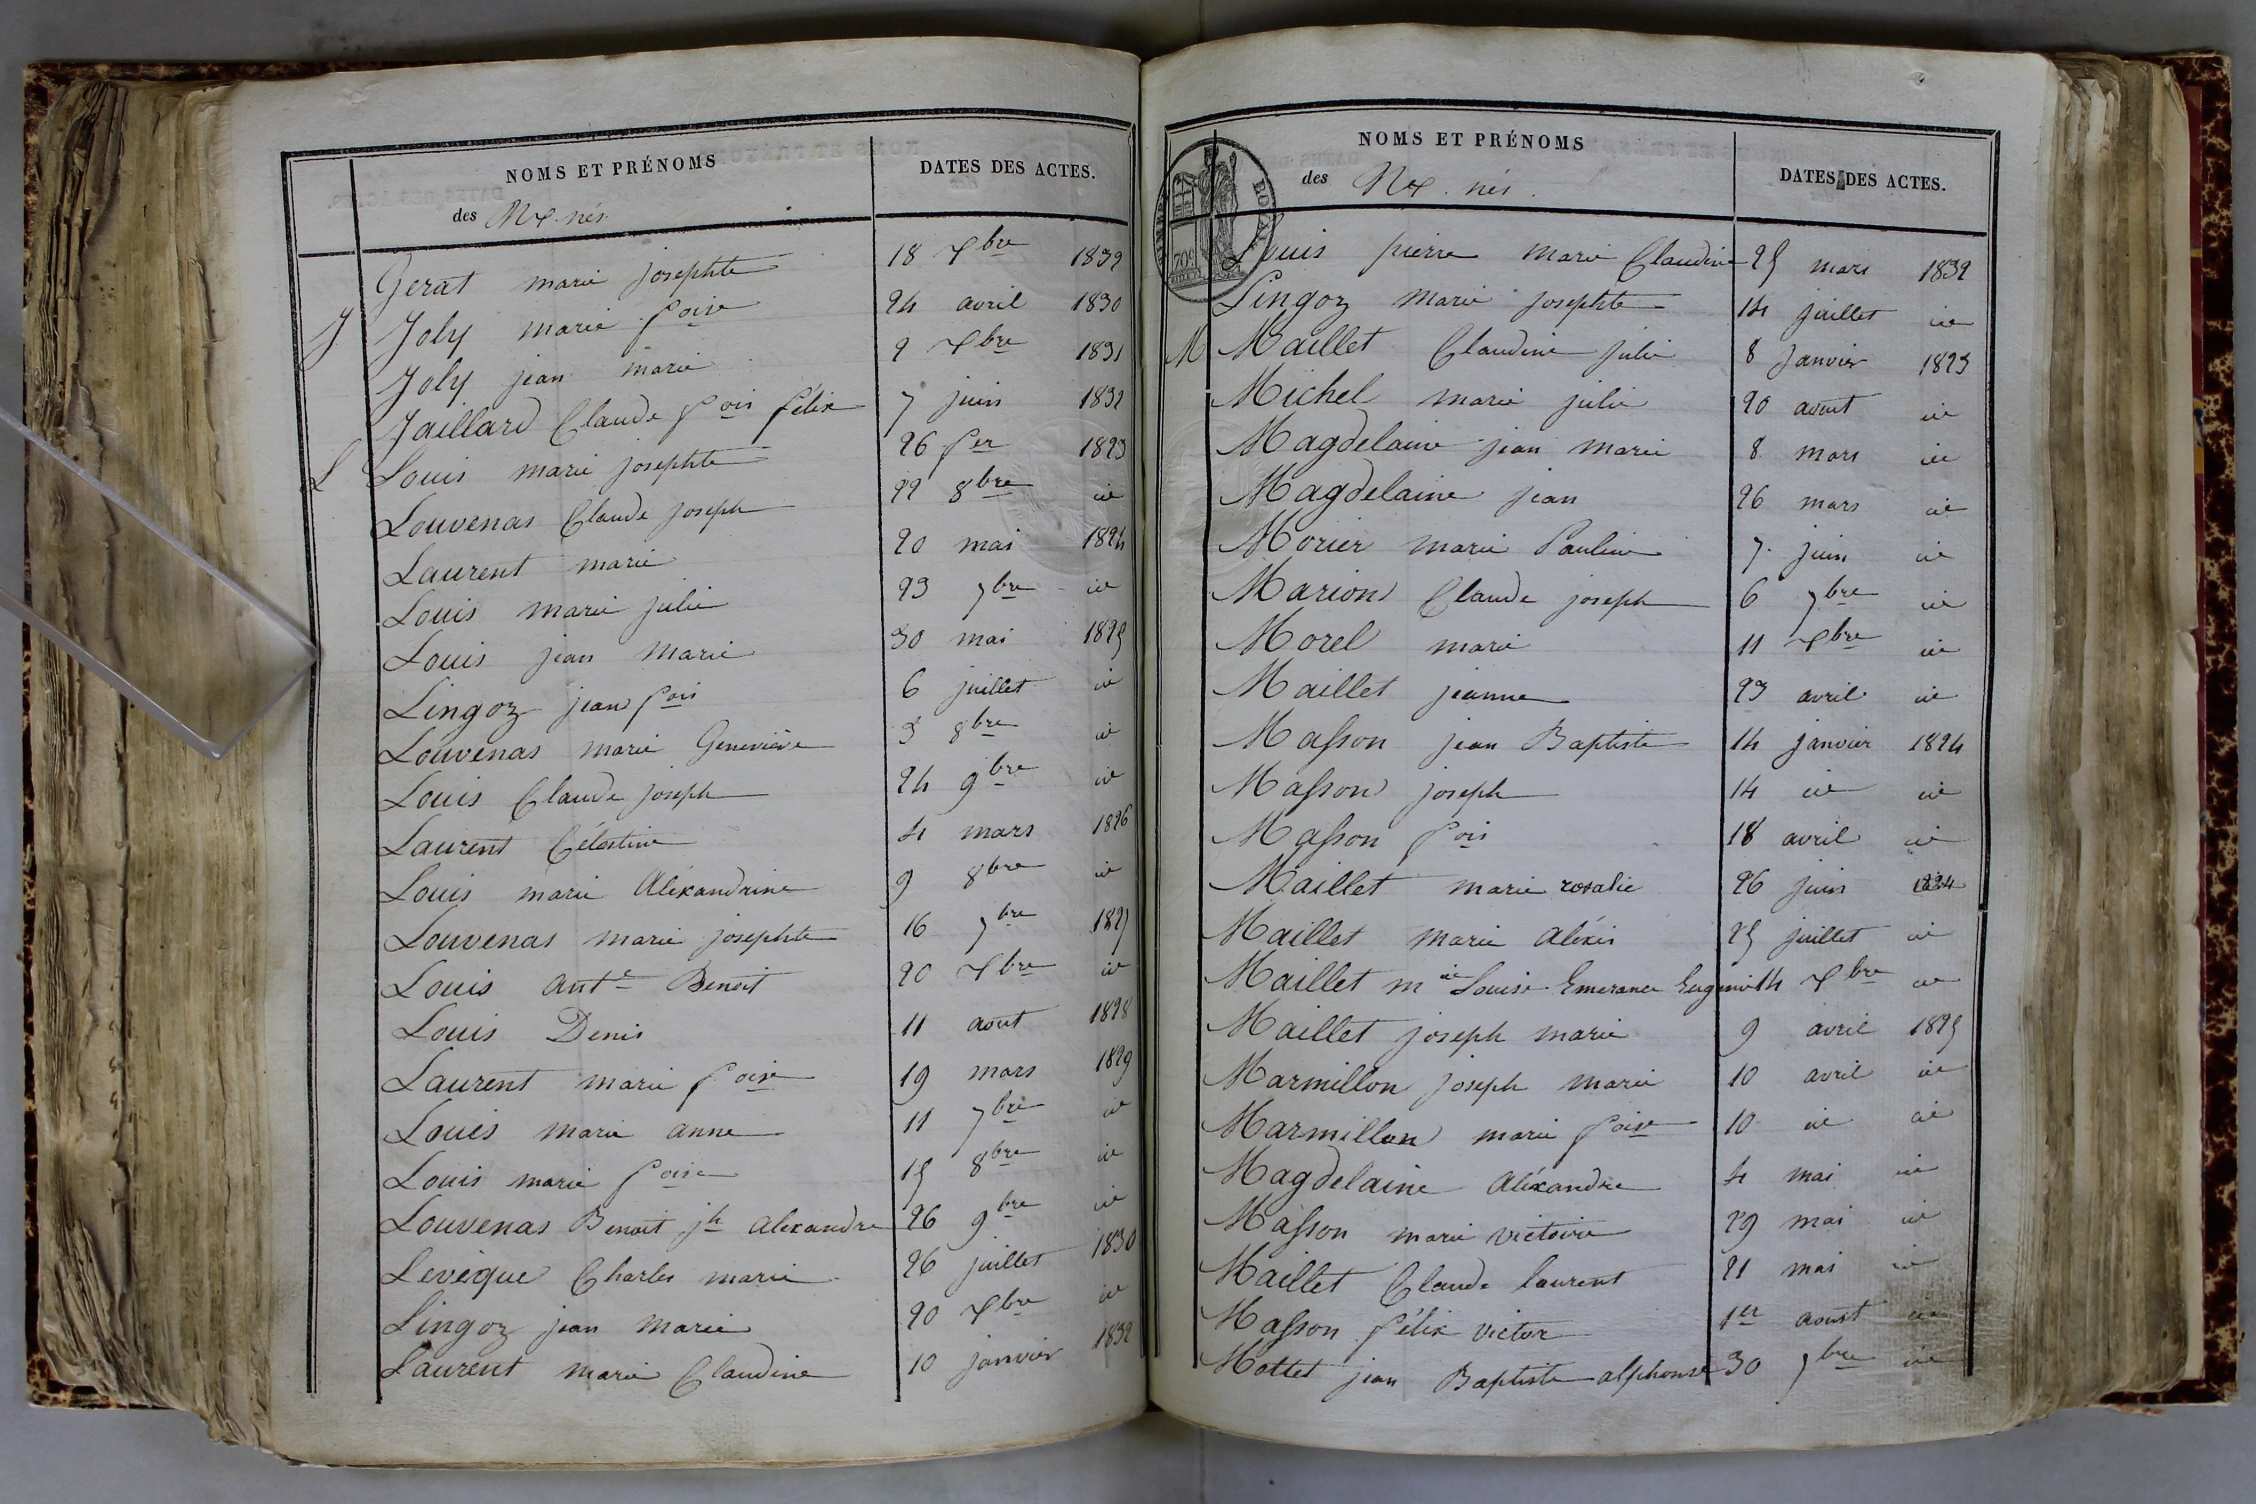 NOMS ET PRÉNOMS
DATES DES ACTES.
des Nx. nés
Gerat marie josephte 18 Xbre 1832
J Joly marie foise 24 avril 1830
Joly jean marie 2 Xbre 1831
Jaillard Claude fois félix 7 juin 1832
L Louis marie josephte 26 fer 1823
Louvenas Claude joseph 22 8bre id
Laurent marie 20 mai 1824
Louis marie julie 23 7bre id
Louis jean marie 30 mai 1825
Lingoz jean fois 6 juillet id
Louvenas marie Geneviève 3 8bre id
Louis Claude joseph 24 9bre id
Laurent Célestine 4 mars 1826
Louis marie Aléxandrine 9 8bre id
Louvenas marie josephte 16 7bre 1827
Louis Ante Benoit 20 Xbre id
Louis Denis 11 aout 1828
Laurent marie foise 19 mars 1829
Louis marie anne 11 7bre id
Louis marie foise 15 8bre id
Louvenas Benoit jh alexandre 26 9bre id
Levèque Charles marie 26 juillet 1830
Lingoz jean marie 20 Xbre id
Laurent marie Claudine 10 janvier 1832
NOMS ET PRÉNOMS
DATES DES ACTES.
des Nx. nés.
Louis pierre marie Claudine 25 mars 1832
Lingoz marie josephte 14 juillet id
M Maillet Claudine julie 8 janvier 1823
Michel marie julie 20 aout id
Magdelaine jean marie 8 mars id
Magdelaine jean 26 mars id
Morier marie Pauline 7 juin id
Marion Claude joseph 6 7bre id
Morel marie 11 Xbre id
Maillet jeanne 23 avril id
Masson jean Baptiste 14 janvier 1824
Masson joseph 14 id id
Masson fois 18 avril id
Maillet marie rosalie 26 juin 1824
Maillet marie aléxis 25 juillet id
Maillet mie Louise Emerance Eugenie 14 Xbre id
Maillet joseph marie 9 avril 1825
Marmillon joseph marie 10 avril id
Marmillon marie foise 10 id id
Magdelaine aléxandre 4 mai id
Masson marie victoire 29 mai id
Maillet Claude laurent 21 mai id
Masson félix victor 1er aoust id
Mottet jean Baptiste alphonse 30 7bre id